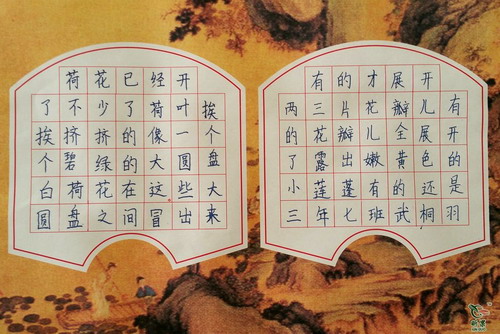 荷花已经开
了不少了荷叶挨
挨挤挤的像一个
个碧绿的大圆盘
白荷花在这些大
圆盘之间冒出来
有的才展开
两三片花瓣儿有
的花瓣儿全展开
了露出嫩黄色的
小莲蓬有的还是
三年七班武桐羽